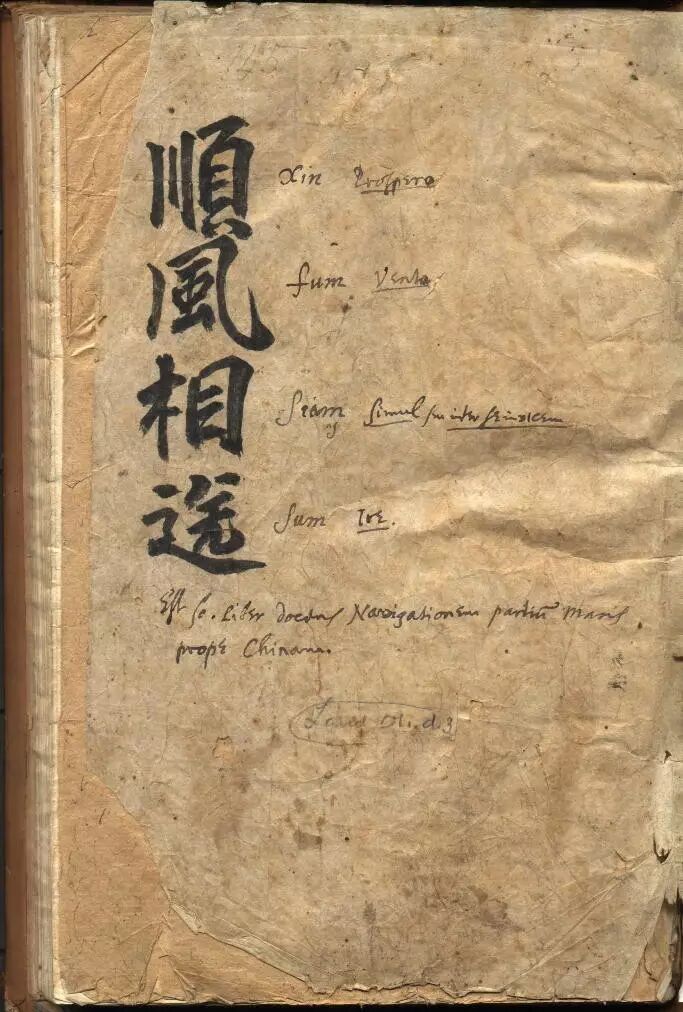 順風相送
Xin Prospero
fum Vento
Siam Simul seu inter se invicem
Sum Ire.
Est sc. Liber docens Navigationem partiū Maris
prope Chinam.
Laud Or. d 3